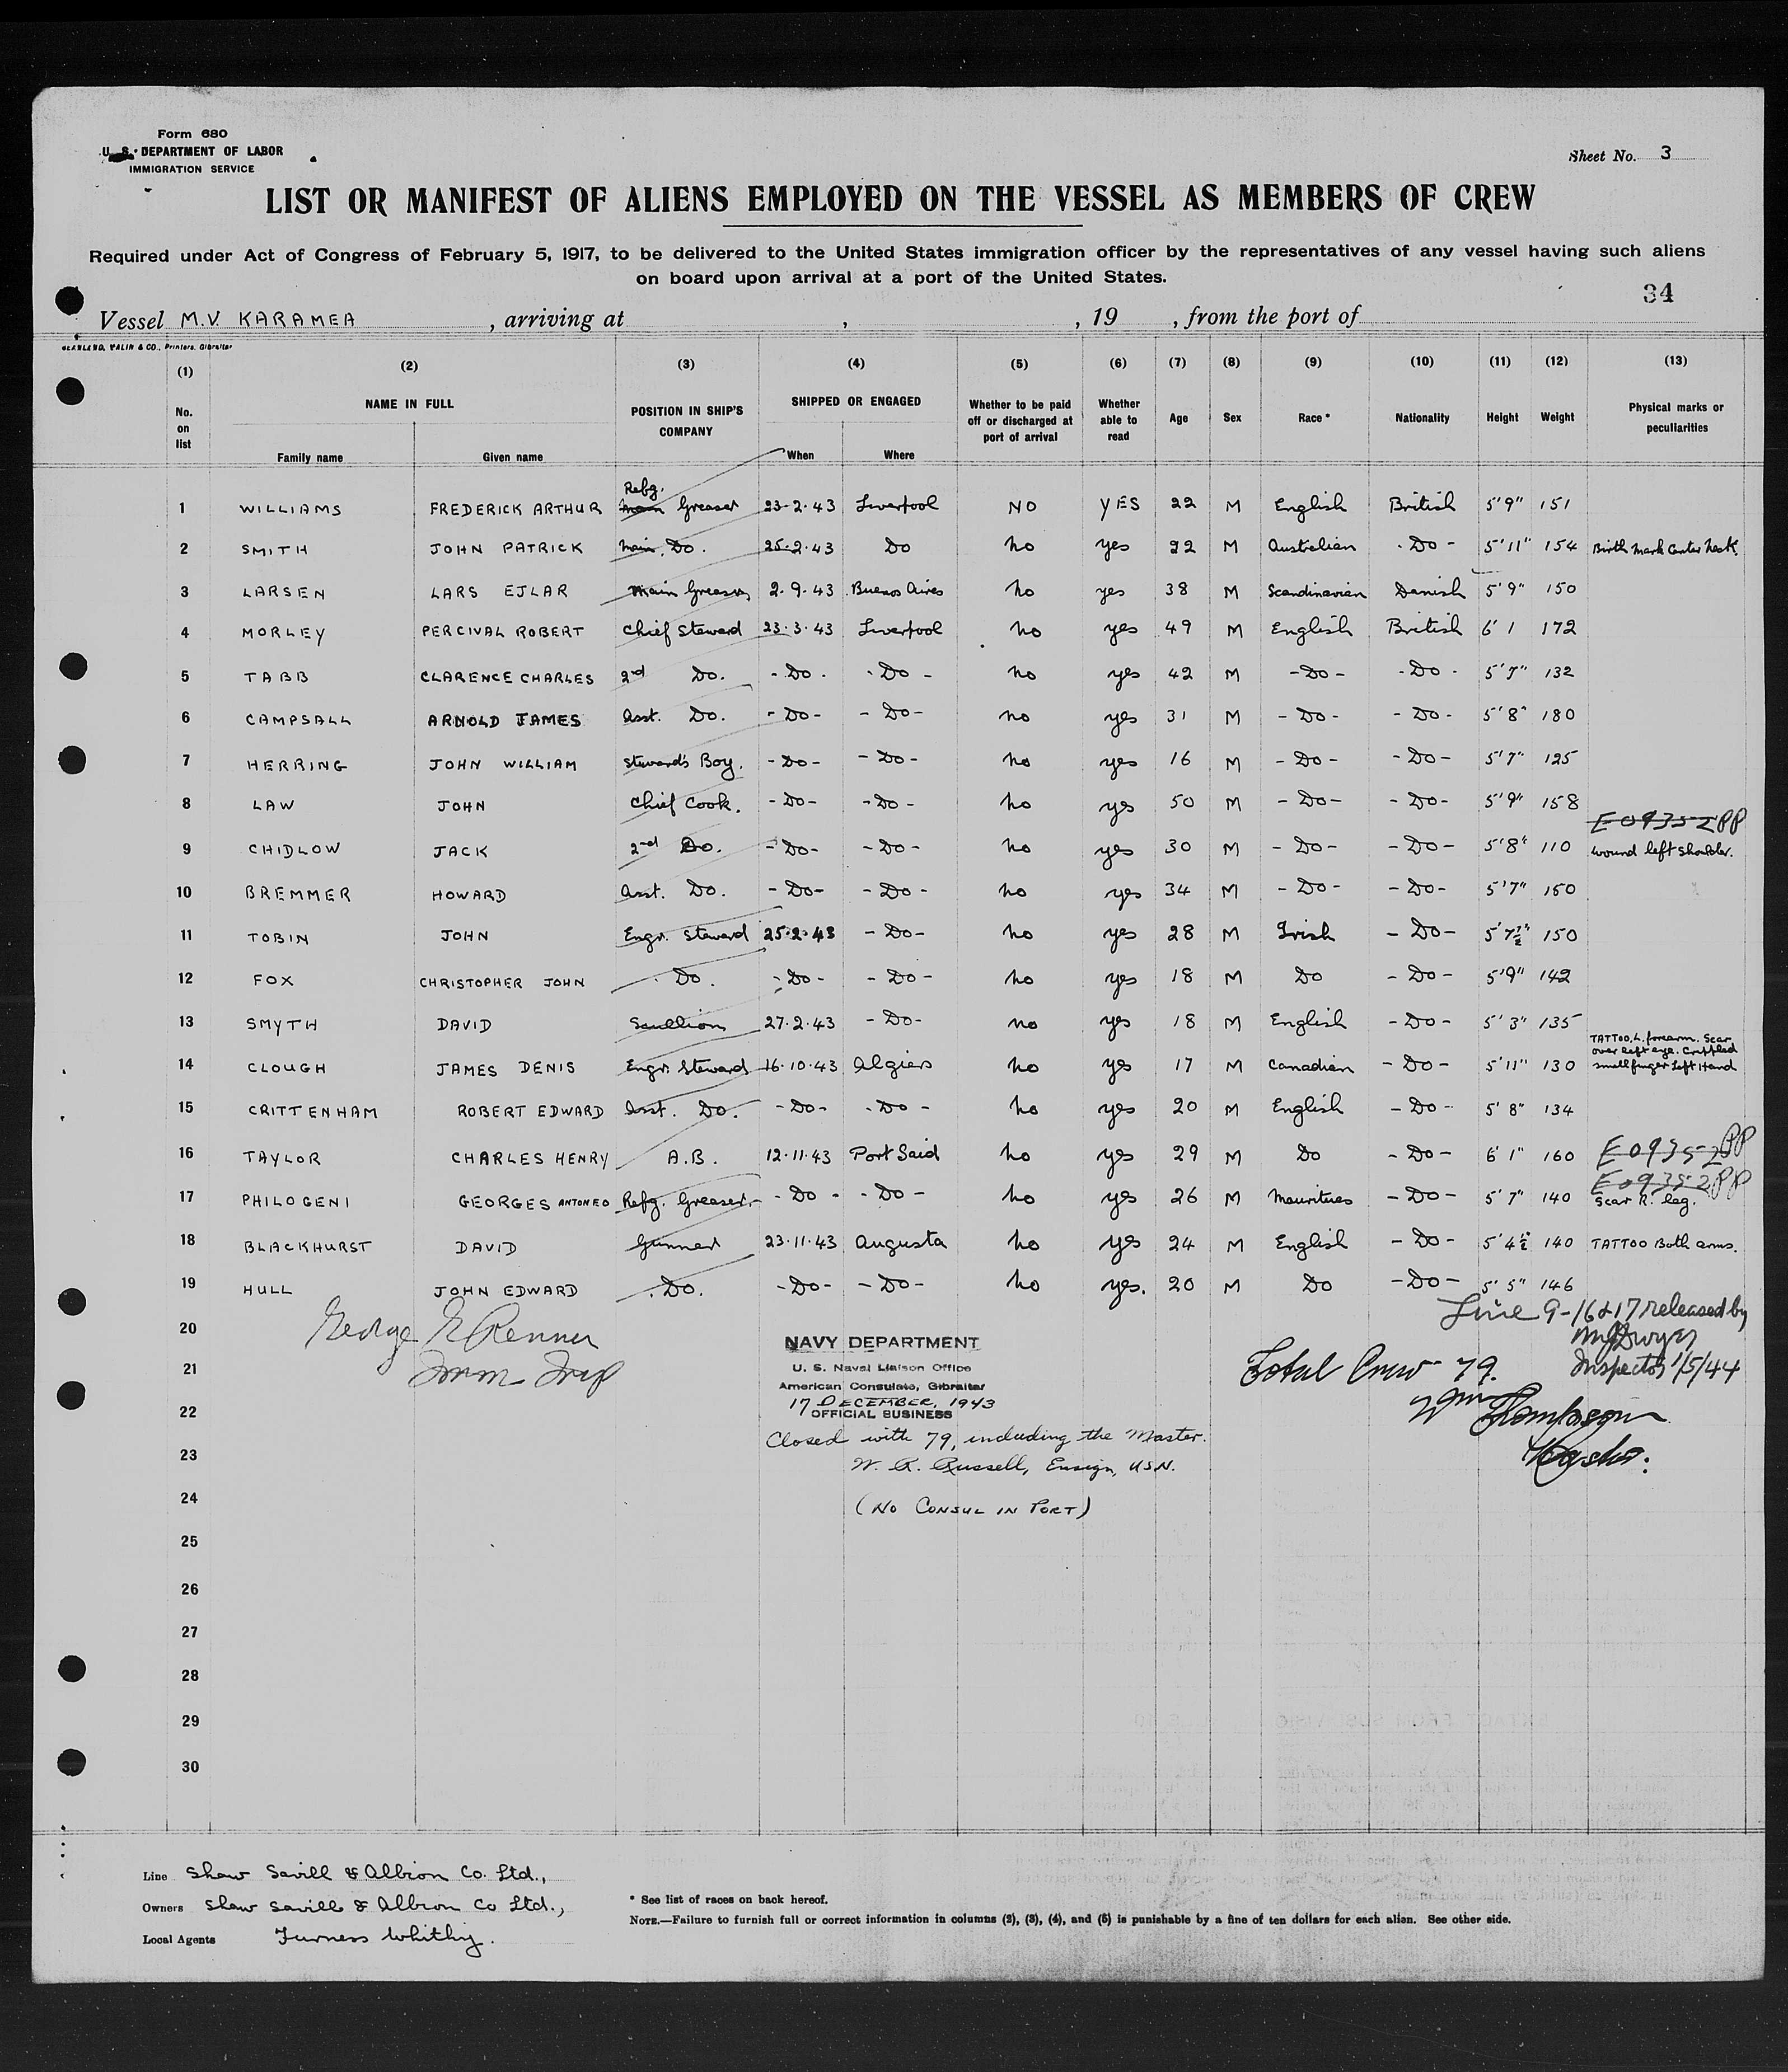 Form 680
U. S. DEPARTMENT OF LABOR
IMMIGRATION SERVICE
Sheet No. 3
LIST OR MANIFEST OF ALIENS EMPLOYED ON THE VESSEL AS MEMBERS OF CREW
Required under Act of Congress of February 5, 1917, to be delivered to the United States immigration officer by the representatives of any vessel having such aliens
on board upon arrival at a port of the United States.
34
Vessel M.V. KARAMEA , arriving at , , 19 , from the port of
Printers, Gibraltar
(1) (2) (3) (4) (5) (6) (7) (8) (9) (10) (11) (12) (13)
No. on list NAME IN FULL Family name Given name POSITION IN SHIP'S COMPANY SHIPPED OR ENGAGED When Where Whether to be paid off or discharged at port of arrival Whether able to read Age Sex Race * Nationality Height Weight Physical marks or peculiarities
1 WILLIAMS FREDERICK ARTHUR Main Refg. Greaser 23-2-43 Liverpool NO YES 22 M English British 5'9" 151
2 SMITH JOHN PATRICK Main. Do. 25.2.43 Do No yes 22 M Australian - Do - 5'11" 154 Birth Mark Center Neck.
3 LARSEN LARS EJLAR Main Greaser 2.9.43 Buenos Aires No yes 38 M Scandinavian Danish 5'9" 150
4 MORLEY PERCIVAL ROBERT Chief Steward 23.3.43 Liverpool No yes 49 M English British 6'1 172
5 TABB CLARENCE CHARLES 2nd Do. - Do - - Do - no yes 42 M - Do - - Do - 5'7" 132
6 CAMPSALL ARNOLD JAMES Asst. Do. - Do - - Do - no yes 31 M - Do - - Do - 5'8" 180
7 HERRING JOHN WILLIAM Steward's Boy. - Do - - Do - No yes 16 M - Do - - Do - 5'7" 125
8 LAW JOHN Chief Cook. - Do - - Do - No yes 50 M - Do - - Do - 5'9" 158
E09352 PP
9 CHIDLOW JACK 2nd Do. - Do - - Do - No yes 30 M - Do - - Do - 5'8" 110 wound left shoulder.
10 BREMMER HOWARD Asst. Do. - Do - - Do - no yes 34 M - Do - - Do - 5'7" 150
11 TOBIN JOHN Engr. Steward 25.2.43 - Do - No yes 28 M Irish - Do - 5'7½" 150
12 FOX CHRISTOPHER JOHN Do. - Do - - Do - No yes 18 M Do - Do - 5'9" 142
13 SMYTH DAVID Scullion 27.2.43 - Do - no yes 18 M English - Do - 5'3" 135
14 CLOUGH JAMES DENIS Engr. Steward 16.10.43 Algiers No yes 17 M Canadian - Do - 5'11" 130 TATTOO. L. forearm. Scar over left eye. Crippled small finger Left Hand
15 CRITTENHAM ROBERT EDWARD Asst. Do. - Do - - Do - No yes 20 M English - Do - 5'8" 134
16 TAYLOR CHARLES HENRY A.B. 12.11.43 Port Said No yes 29 M Do - Do - 6'1" 160 E09352 PP
E09352 PP
17 PHILOGENI GEORGES ANTONEO Refg. Greaser. - Do - - Do - No yes 26 M Mauritius - Do - 5'7" 140 Scar R. leg.
18 BLACKHURST DAVID Gunner 23.11.43 Augusta No yes 24 M English - Do - 5'4½ 140 TATTOO Both arms.
19 HULL JOHN EDWARD Do. - Do - - Do - No yes. 20 M Do - Do - 5'5" 146
Line 9-16 & 17 released by
Inspector 1/5/44
20 George E Renner
21
NAVY DEPARTMENT
U. S. Naval Liaison Office
American Consulate, Gibraltar
17 DECEMBER, 1943
OFFICIAL BUSINESS
Total Crew 79.
22
Thompson
Closed with 79, including the Master.
23
W. R. Russell, Ensign, USN.
24 (NO CONSUL IN PORT)
25
26
27
28
29
30
Line Shaw Savill & Albion Co. Ltd.,
Owners Shaw Savill & Albion Co Ltd.,
Local Agents Furness Withy.
* See list of races on back hereof.
NOTE.—Failure to furnish full or correct information in columns (2), (3), (4), and (5) is punishable by a fine of ten dollars for each alien. See other side.